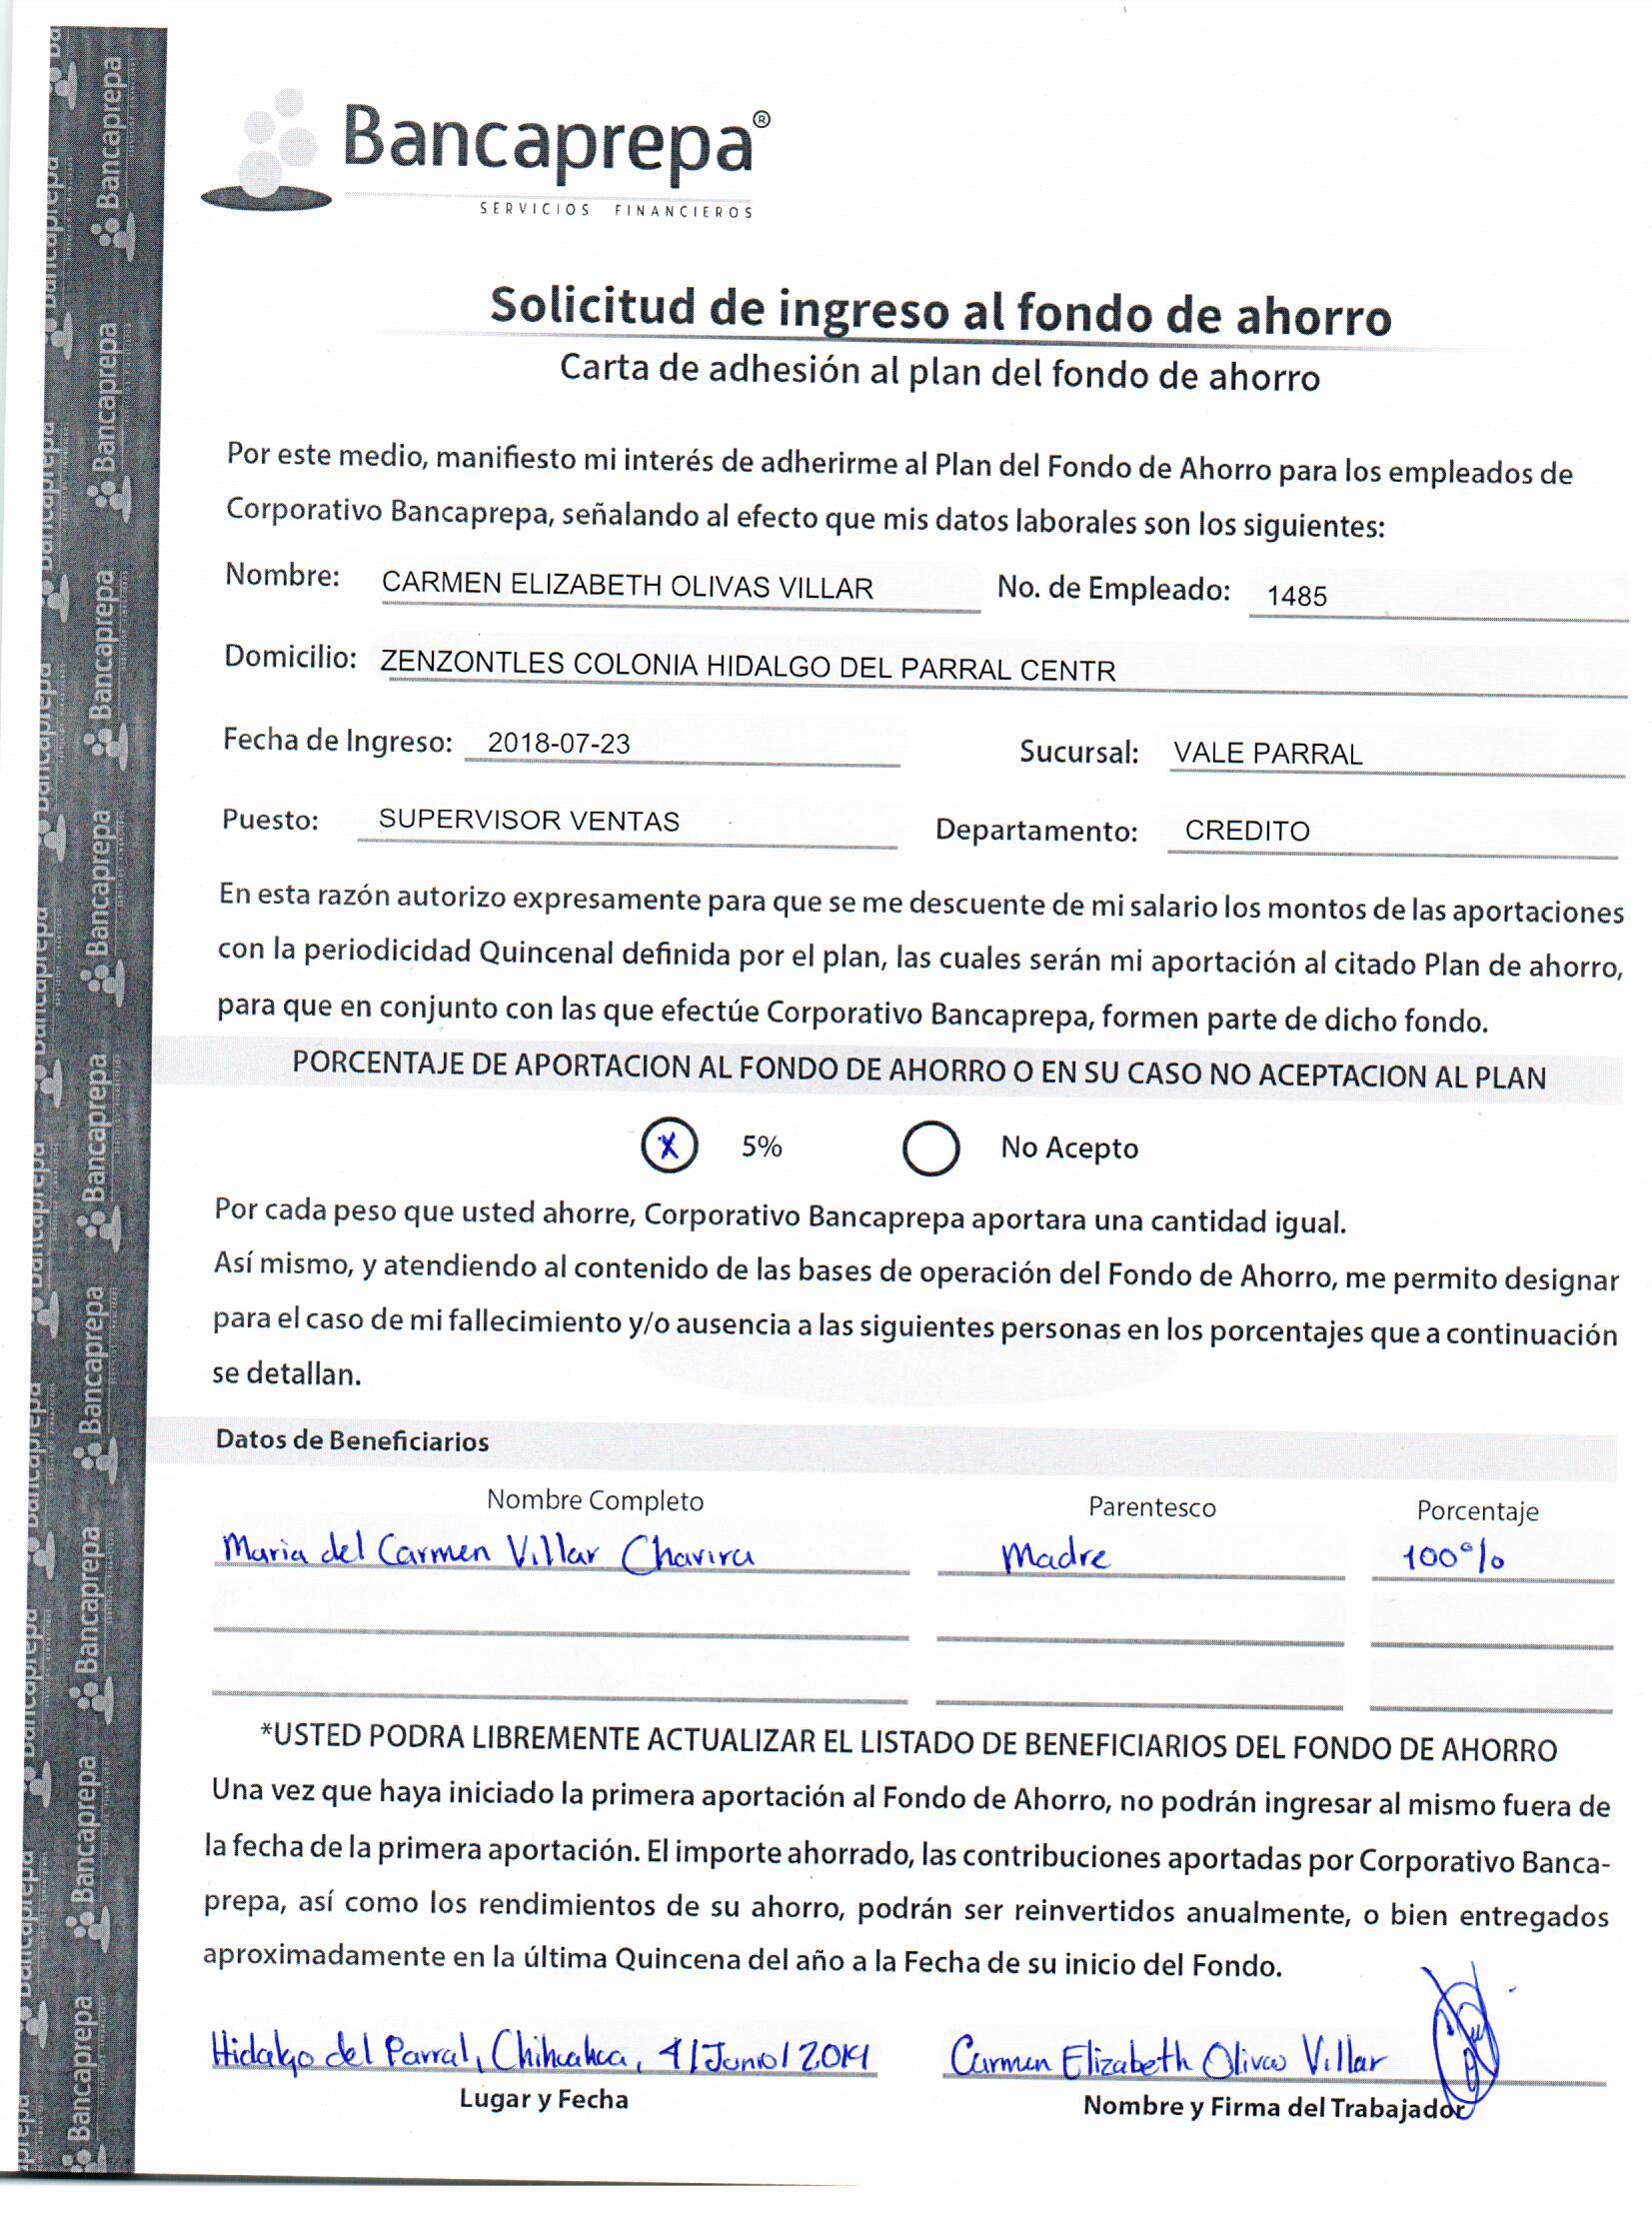 Bancaprepa®
SERVICIOS FINANCIEROS
Solicitud de ingreso al fondo de ahorro
Carta de adhesión al plan del fondo de ahorro
Por este medio, manifiesto mi interés de adherirme al Plan del Fondo de Ahorro para los empleados de
Corporativo Bancaprepa, señalando al efecto que mis datos laborales son los siguientes:
Nombre: CARMEN ELIZABETH OLIVAS VILLAR No. de Empleado: 1485
Domicilio: ZENZONTLES COLONIA HIDALGO DEL PARRAL CENTR
Fecha de Ingreso: 2018-07-23 Sucursal: VALE PARRAL
Puesto: SUPERVISOR VENTAS Departamento: CREDITO
En esta razón autorizo expresamente para que se me descuente de mi salario los montos de las aportaciones
con la periodicidad Quincenal definida por el plan, las cuales serán mi aportación al citado Plan de ahorro,
para que en conjunto con las que efectúe Corporativo Bancaprepa, formen parte de dicho fondo.
PORCENTAJE DE APORTACION AL FONDO DE AHORRO O EN SU CASO NO ACEPTACION AL PLAN
X 5% No Acepto
Por cada peso que usted ahorre, Corporativo Bancaprepa aportara una cantidad igual.
Así mismo, y atendiendo al contenido de las bases de operación del Fondo de Ahorro, me permito designar
para el caso de mi fallecimiento y/o ausencia a las siguientes personas en los porcentajes que a continuación
se detallan.
Datos de Beneficiarios
Nombre Completo Parentesco Porcentaje
Maria del Carmen Villar Chavira Madre 100%
*USTED PODRA LIBREMENTE ACTUALIZAR EL LISTADO DE BENEFICIARIOS DEL FONDO DE AHORRO
Una vez que haya iniciado la primera aportación al Fondo de Ahorro, no podrán ingresar al mismo fuera de
la fecha de la primera aportación. El importe ahorrado, las contribuciones aportadas por Corporativo Banca-
prepa, así como los rendimientos de su ahorro, podrán ser reinvertidos anualmente, o bien entregados
aproximadamente en la última Quincena del año a la Fecha de su inicio del Fondo.
Hidalgo del Parral, Chihuahua, 4/Junio/2019 Carmen Elizabeth Olivas Villar
Lugar y Fecha Nombre y Firma del Trabajador